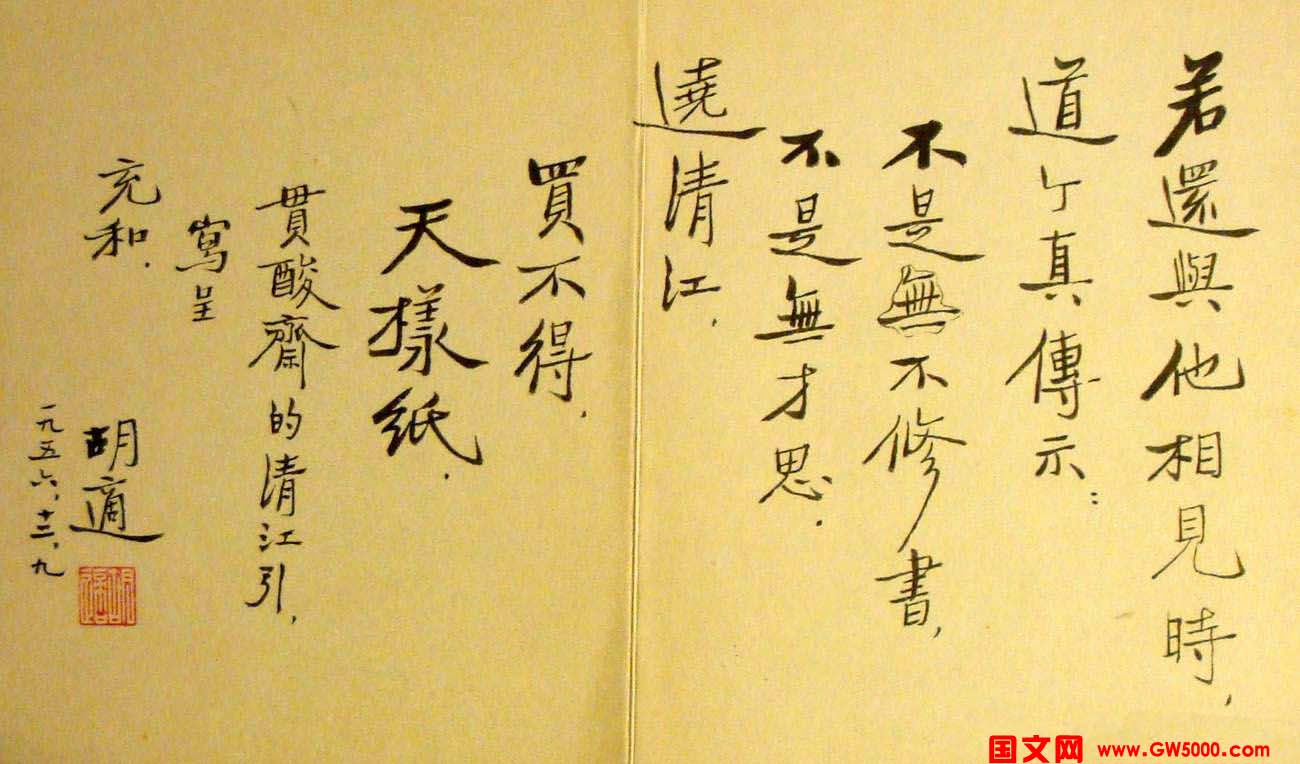 若還與他相見時，
道亇真傳示：
不是無不修書，
不是無才思．
遶清江，
買不得，
天樣紙．
貫酸齋的清江引，
寫呈
充和．
胡適
一九五六，十二，九
国文网 www.GW5000.com